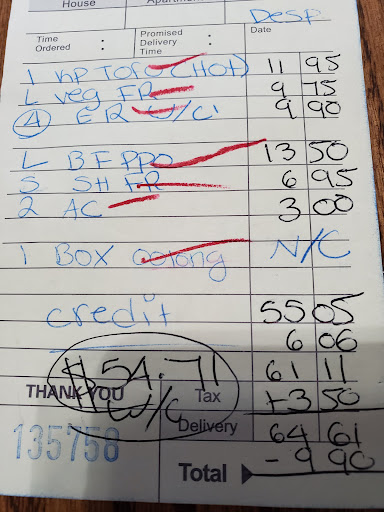 House Apartment
Desp
Time Ordered : Promised Delivery Time : Date
1 hp Tofu (Hot) 11 95
L veg FR 9 75
④ ER w/c! 9 90
L BF PPO 13 50
S SH FR 6 95
2 AC 3 00
1 Box oolong N/C
credit 55 05
6 06
$54.71 61 11
THANK YOU W/C Tax +3 50
135758 Delivery 64 61
Total - 9 90